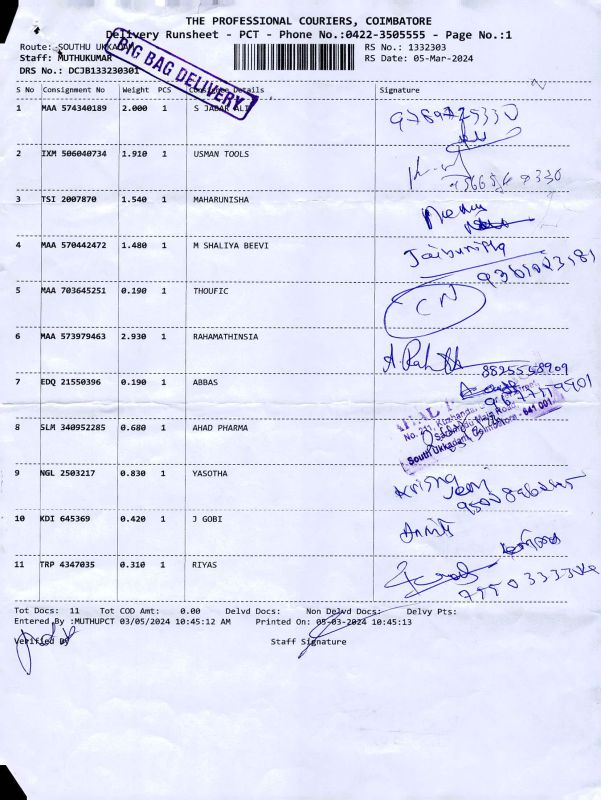 THE PROFESSIONAL COURIERS, COIMBATORE
Delivery Runsheet - PCT - Phone No.:0422-3505555 - Page No.:1
Route: SOUTHU UKKADAM
RS No.: 1332303
Staff: MUTHUKUMAR
RS Date: 05-Mar-2024
DRS No.: DCJB133230301
BIG BAG DELIVERY
S No Consignment No Weight PCS Consignee Details Signature
1 MAA 574340189 2.000 1 S JABAR ALI
2 IXM 506040734 1.910 1 USMAN TOOLS
3 TSI 2007870 1.540 1 MAHARUNISHA
4 MAA 570442472 1.480 1 M SHALIYA BEEVI Jaibunisha
5 MAA 703645251 0.190 1 THOUFIC CN
6 MAA 573979463 2.930 1 RAHAMATHINSIA
8825558909
7 EDQ 21550396 0.190 1 ABBAS
8 SLM 340952285 0.680 1 AHAD PHARMA
South Ukkadam, Coimbatore - 641 001.
9 NGL 2503217 0.830 1 YASOTHA Krishna
10 KDI 645369 0.420 1 J GOBI
11 TRP 4347035 0.310 1 RIYAS
Tot Docs: 11 Tot COD Amt: 0.00 Delvd Docs: Non Delvd Docs: Delvy Pts:
Entered By :MUTHUPCT 03/05/2024 10:45:12 AM Printed On: 05-03-2024 10:45:13
Verified By Staff Signature